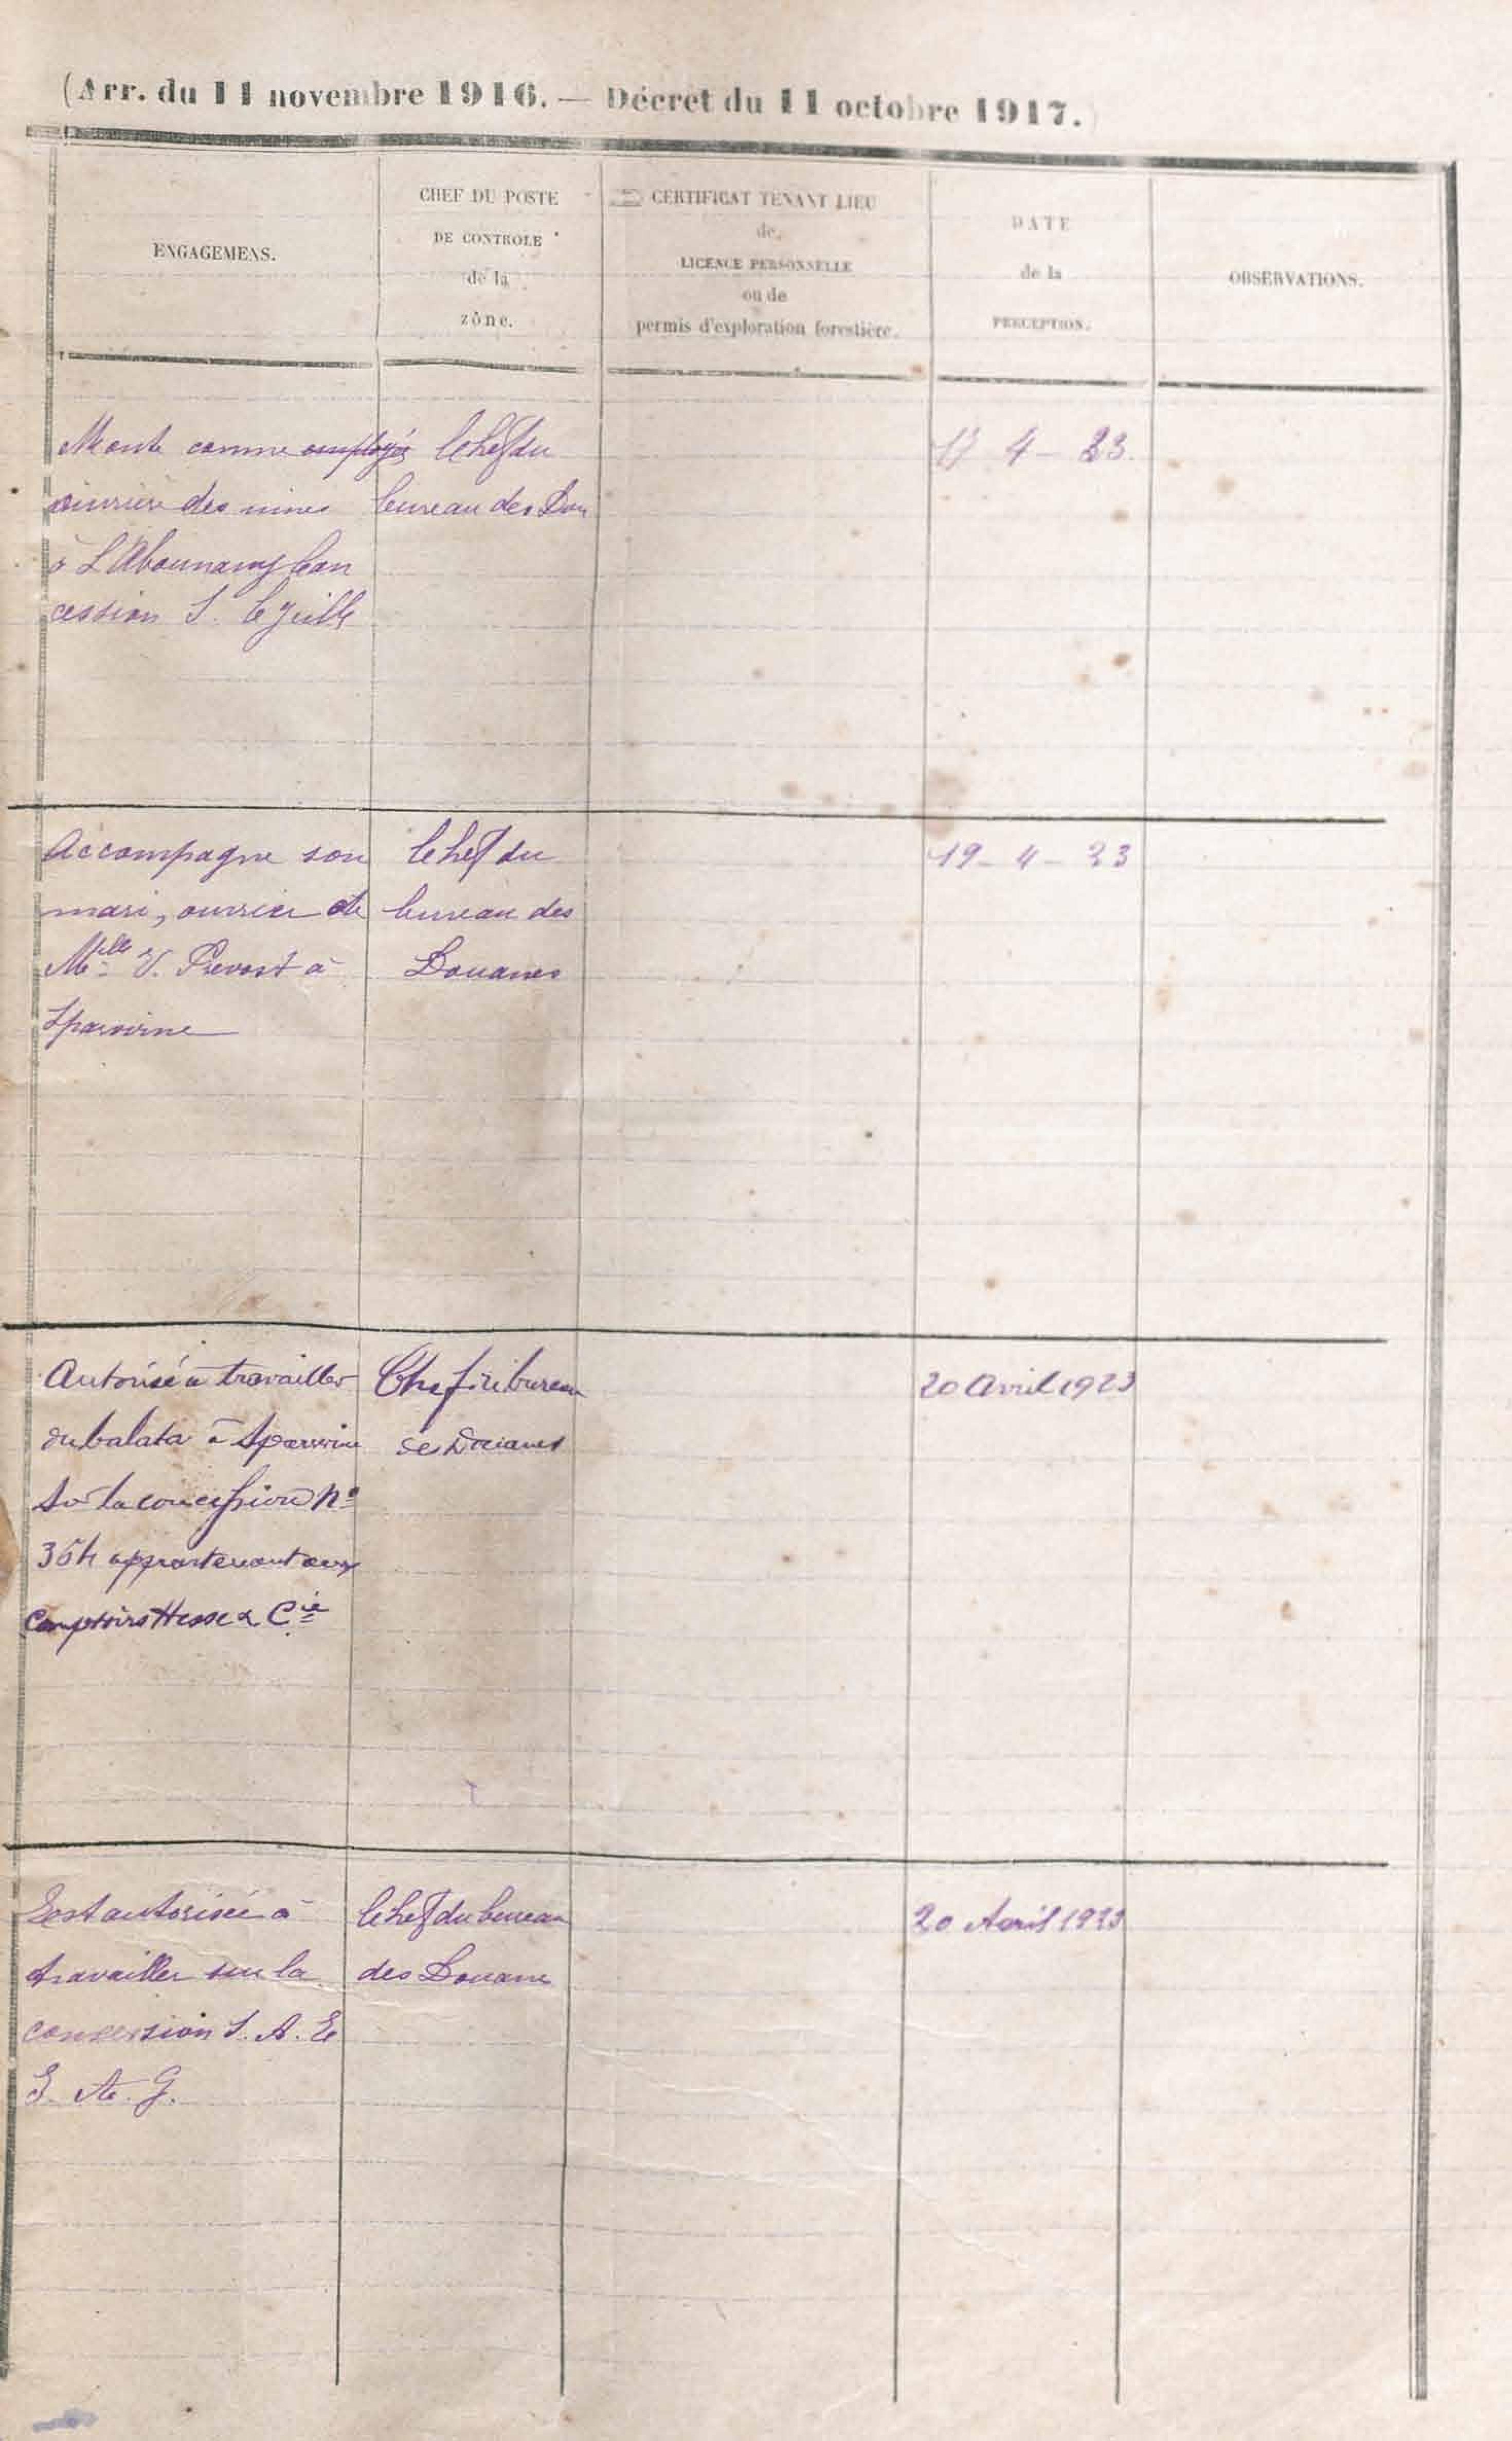 (Arr. du 11 novembre 1916. — Décret du 11 octobre 1917.)
ENGAGEMENS.
CHEF DU POSTE
DE CONTROLE
de la
zône.
CERTIFICAT TENANT LIEU
de
LICENCE PERSONNELLE
ou de
permis d'exploration forestière.
DATE
de la
PERCEPTION.
OBSERVATIONS.
Monte comme employée
ouvrière des mines
à L'Abounamy Con
cession S.
le chef du
bureau des Dou
4 - 23.
Accompagne son
mari, ouvrier de
Melle V. Prevost à
Sparwine
le chef du
bureau des
Douanes
19 - 4 - 23
Autorisé à travailler
du balata à Sparwine
sur la concession No
364 appartenant aux
Comptoirs Hesse & Cie
Chef du bureau
des Douanes
20 Avril 1923
Est autorisée à
travailler sur la
concession S. A. E
le chef du bureau
des Douane
20 Avril 1923